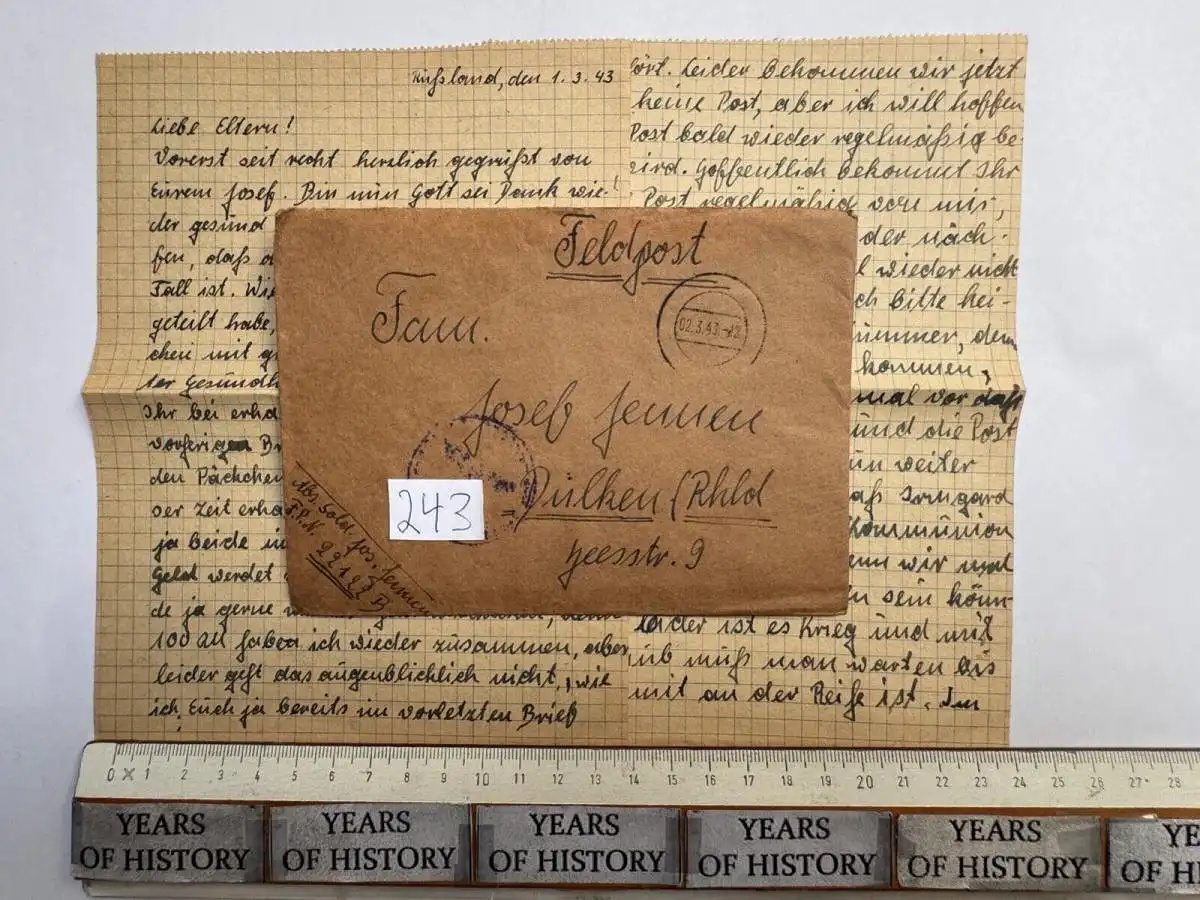 Rußland, den 1.3.43
Liebe Eltern!
Vorerst seit recht herzlich gegrüßt von
Eurem Josef. Bin nun Gott sei Dank wie-
der gesund
fen, daß
Fall ist. Wie
geteilt habe,
chen mit
ter Gesundh
Ihr bei erha
vorherigen Br
den Päckchen
der Zeit erha
ja beide in
Geld werdet
de ja gerne
100 haben ich wieder zusammen, aber
leider geht das augenblicklich nicht, wie
ich Euch ja bereits im vorletzten Brief
hört. Leider bekommen wir jetzt
keine Post, aber ich will hoffen
Post bald wieder regelmäßig be-
wird. Hoffentlich bekommt Ihr
Post regelmäßig von mir,
der näch-
l wieder nicht
ch bitte kei-
nummer, denn
kommen,
mal vor daß
und die Post
un weiter
daß Irmgard
Kommunion
enn wir mal
n sein könn-
leider ist es Krieg und mit
muß man warten bis
mit an der Reihe ist. Im
Feldpost
02.3.43.-12
Fam.
Josef Jennen
Dülken (Rhld
Heesstr. 9
Abs. Sold. Jos. Jennen
F.P.N. 22122 B
243
0 1 2 3 4 5 6 7 8 9 10 11 12 13 14 15 16 17 18 19 20 21 22 23 24 25 26 27 28
YEARS
OF HISTORY
YEARS
OF HISTORY
YEARS
OF HISTORY
YEARS
OF HISTORY
YEARS
OF HISTORY
YE
OF HI